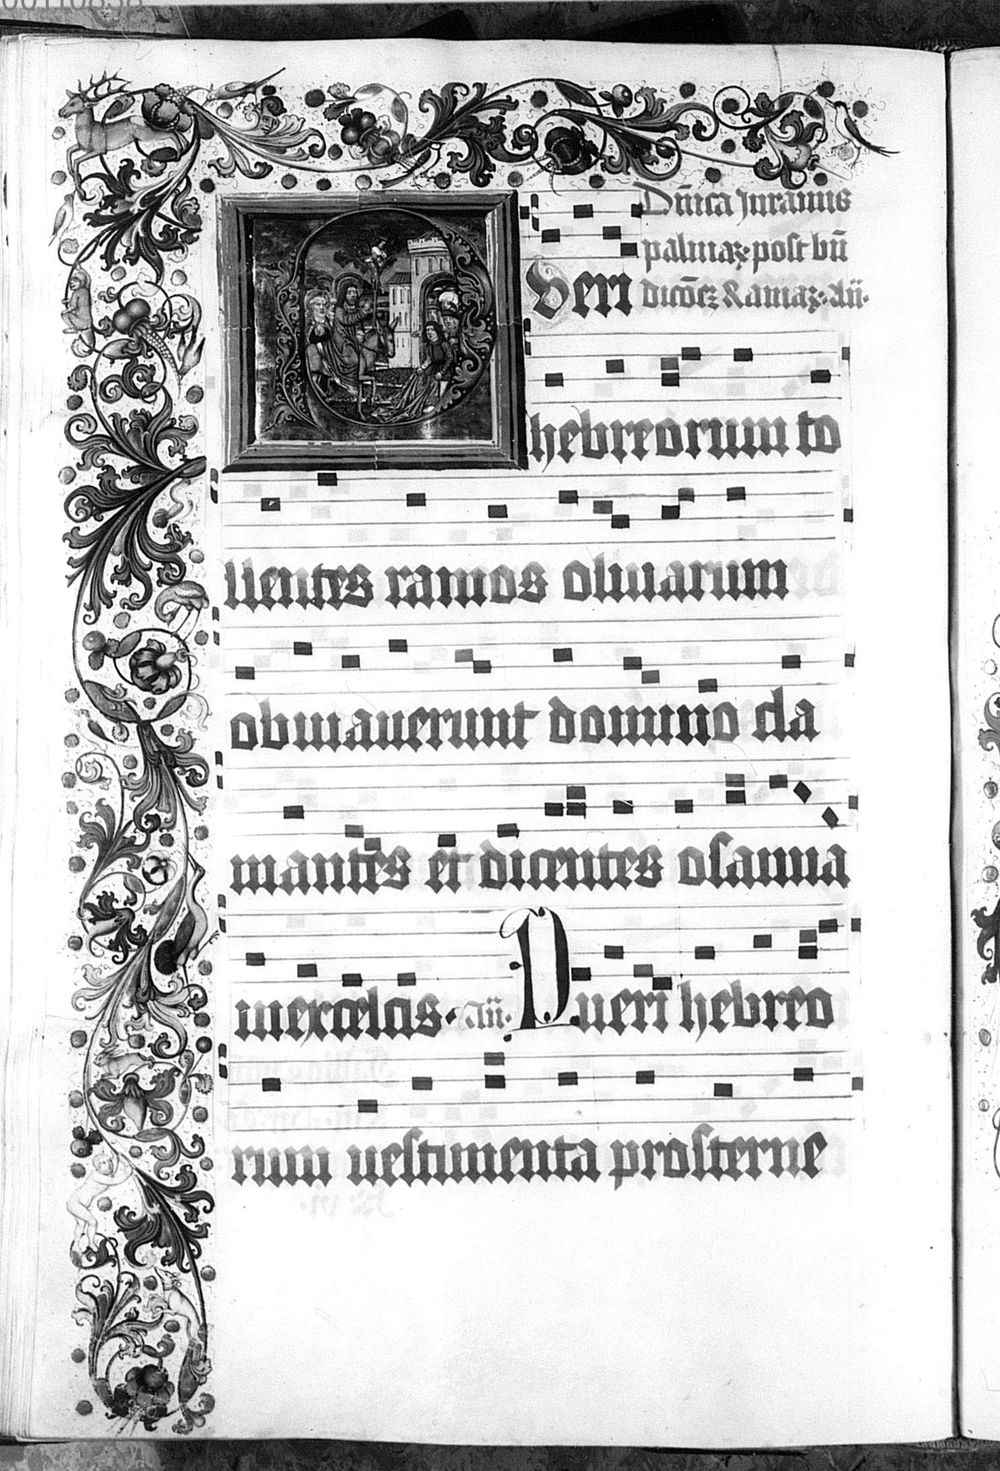 00110838
Dn̄ica in ramis
palmaꝝ post bn̄
dictōeꝫ Ramaꝝ. An̄.
Ueri
hebreorum to
llentes ramos oliuarum
obuiauerunt domino cla
mantes et dicentes osanna
in excelcis. An̄. Pueri hebreo
rum uestimenta prosterne